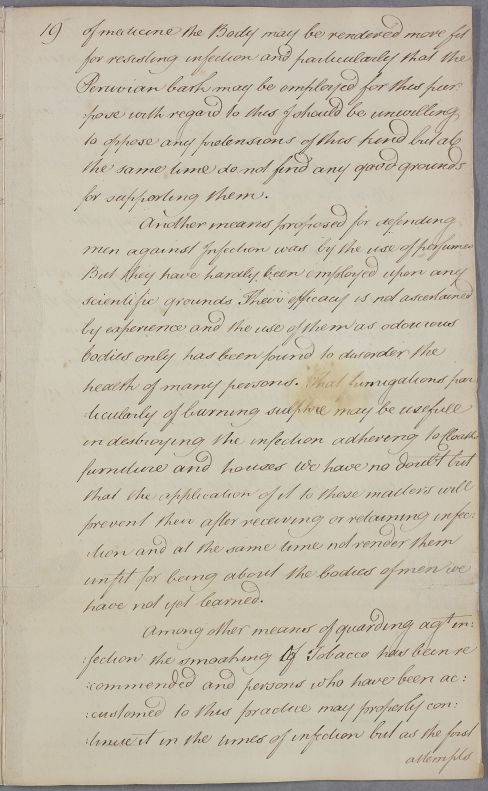 19
of medicine the Body may be rendered more fit
for resisting infection and particularly that the
Peruvian bark may be employed for this pur
:pose with regard to this I should be unwilling
to oppose any pretensions of this kind but at
the same time do not find any good grounds
for supporting them.
Another means proposed for defending
men against Infection was by the use of perfumes
But they have hardly been employed upon any
scientific grounds Their efficacy is not ascertained
by experience and the use of them as odourous
bodies only has been found to disorder the
health of many persons. That fumigations par
:ticularly of burning sulphre may be usefull
in destroying the infection adhering to Cloaths
furniture and houses we have no doubt but
that the application of it to these matters will
prevent their after receiving or retaining infec:
:tion and at the same time not render them
unfit for being about the bodies of men we
have not yet learned.
Among other means of guarding agt in:
:fection the smoaking of Tobacco has been re
:commended and persons who have been ac:
:customed to this practice may properly con:
:tinue it in the times of infection but as the first
attempts